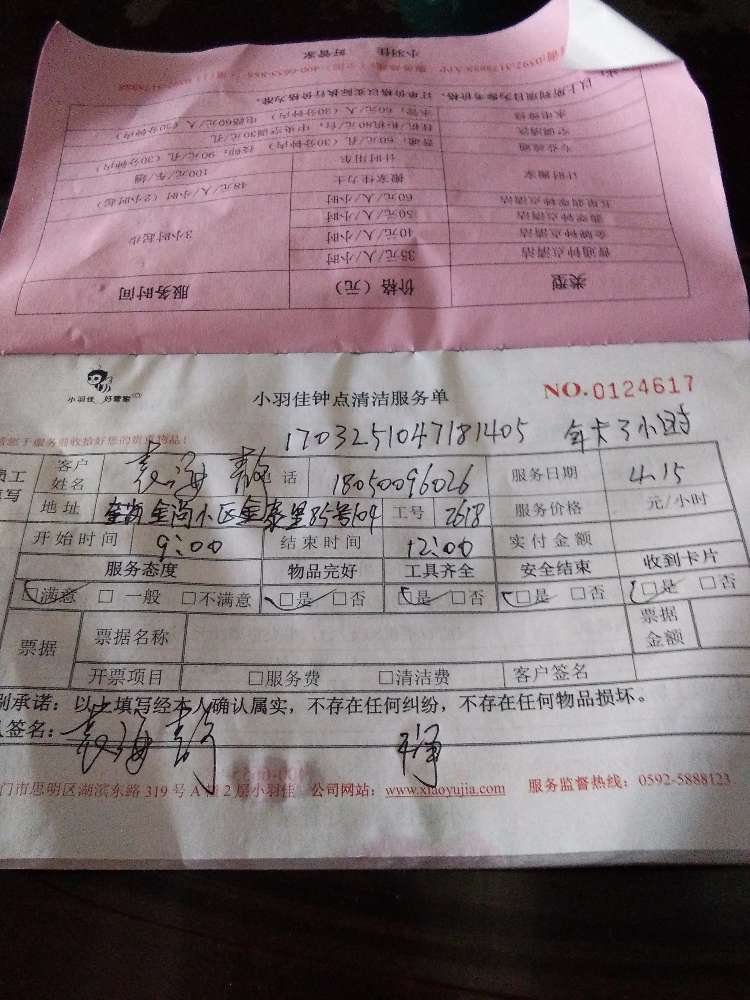 小羽佳 好管家
类型 价格（元） 服务时间
普通钟点清洁 35元/人/小时 3小时起步
金牌钟点清洁 40元/人/小时
翡翠钟点清洁 50元/人/小时
60元/人/小时 48元/人/小时（2小时起）
计时搬家 搬家佳力士 100元/车/趟
计时用车
专业疏通 普通：60元/孔（30分钟内） 90元/孔（30分钟内）
空调清洗 挂机/柜机80元/台，中央空调30元/孔
水电维修 水管：60元/人（30分钟内） 电路60元/人（30分钟内）
以上明列项目为参考价格，订单价格以实际执行价格为准。
小羽佳 好管家
小羽佳钟点清洁服务单
NO.0124617
1703251047181405 年卡3小时
客户姓名 袁海静 电话 18050096026 服务日期 4.15
地址 金尚小区金泰里85号104 工号 2618 服务价格 元/小时
开始时间 9:00 结束时间 12:00 实付金额
服务态度 物品完好 工具齐全 安全结束 收到卡片
□满意 □一般 □不满意 □是 □否 □是 □否 □是 □否 □是 □否
票据 票据名称 票据金额
开票项目 □服务费 □清洁费 客户签名
别承诺：以上填写经本人确认属实，不存在任何纠纷，不存在任何物品损坏。
签名：袁海静
门市思明区湖滨东路 319 号 A 2 层小羽佳 公司网站：www.xiaoyujia.com 服务监督热线：0592-5888123